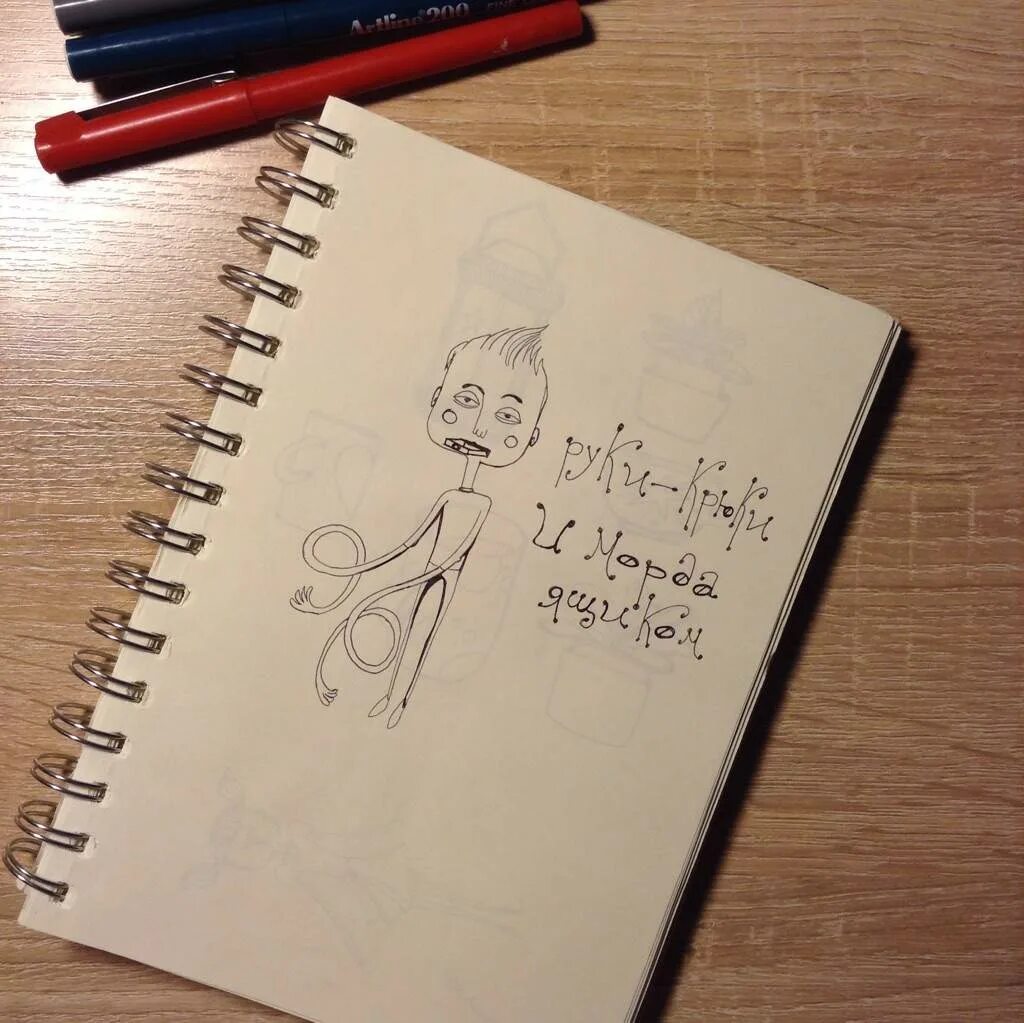 Artline 200 FINE
руки-крюки
и морда
ящиком